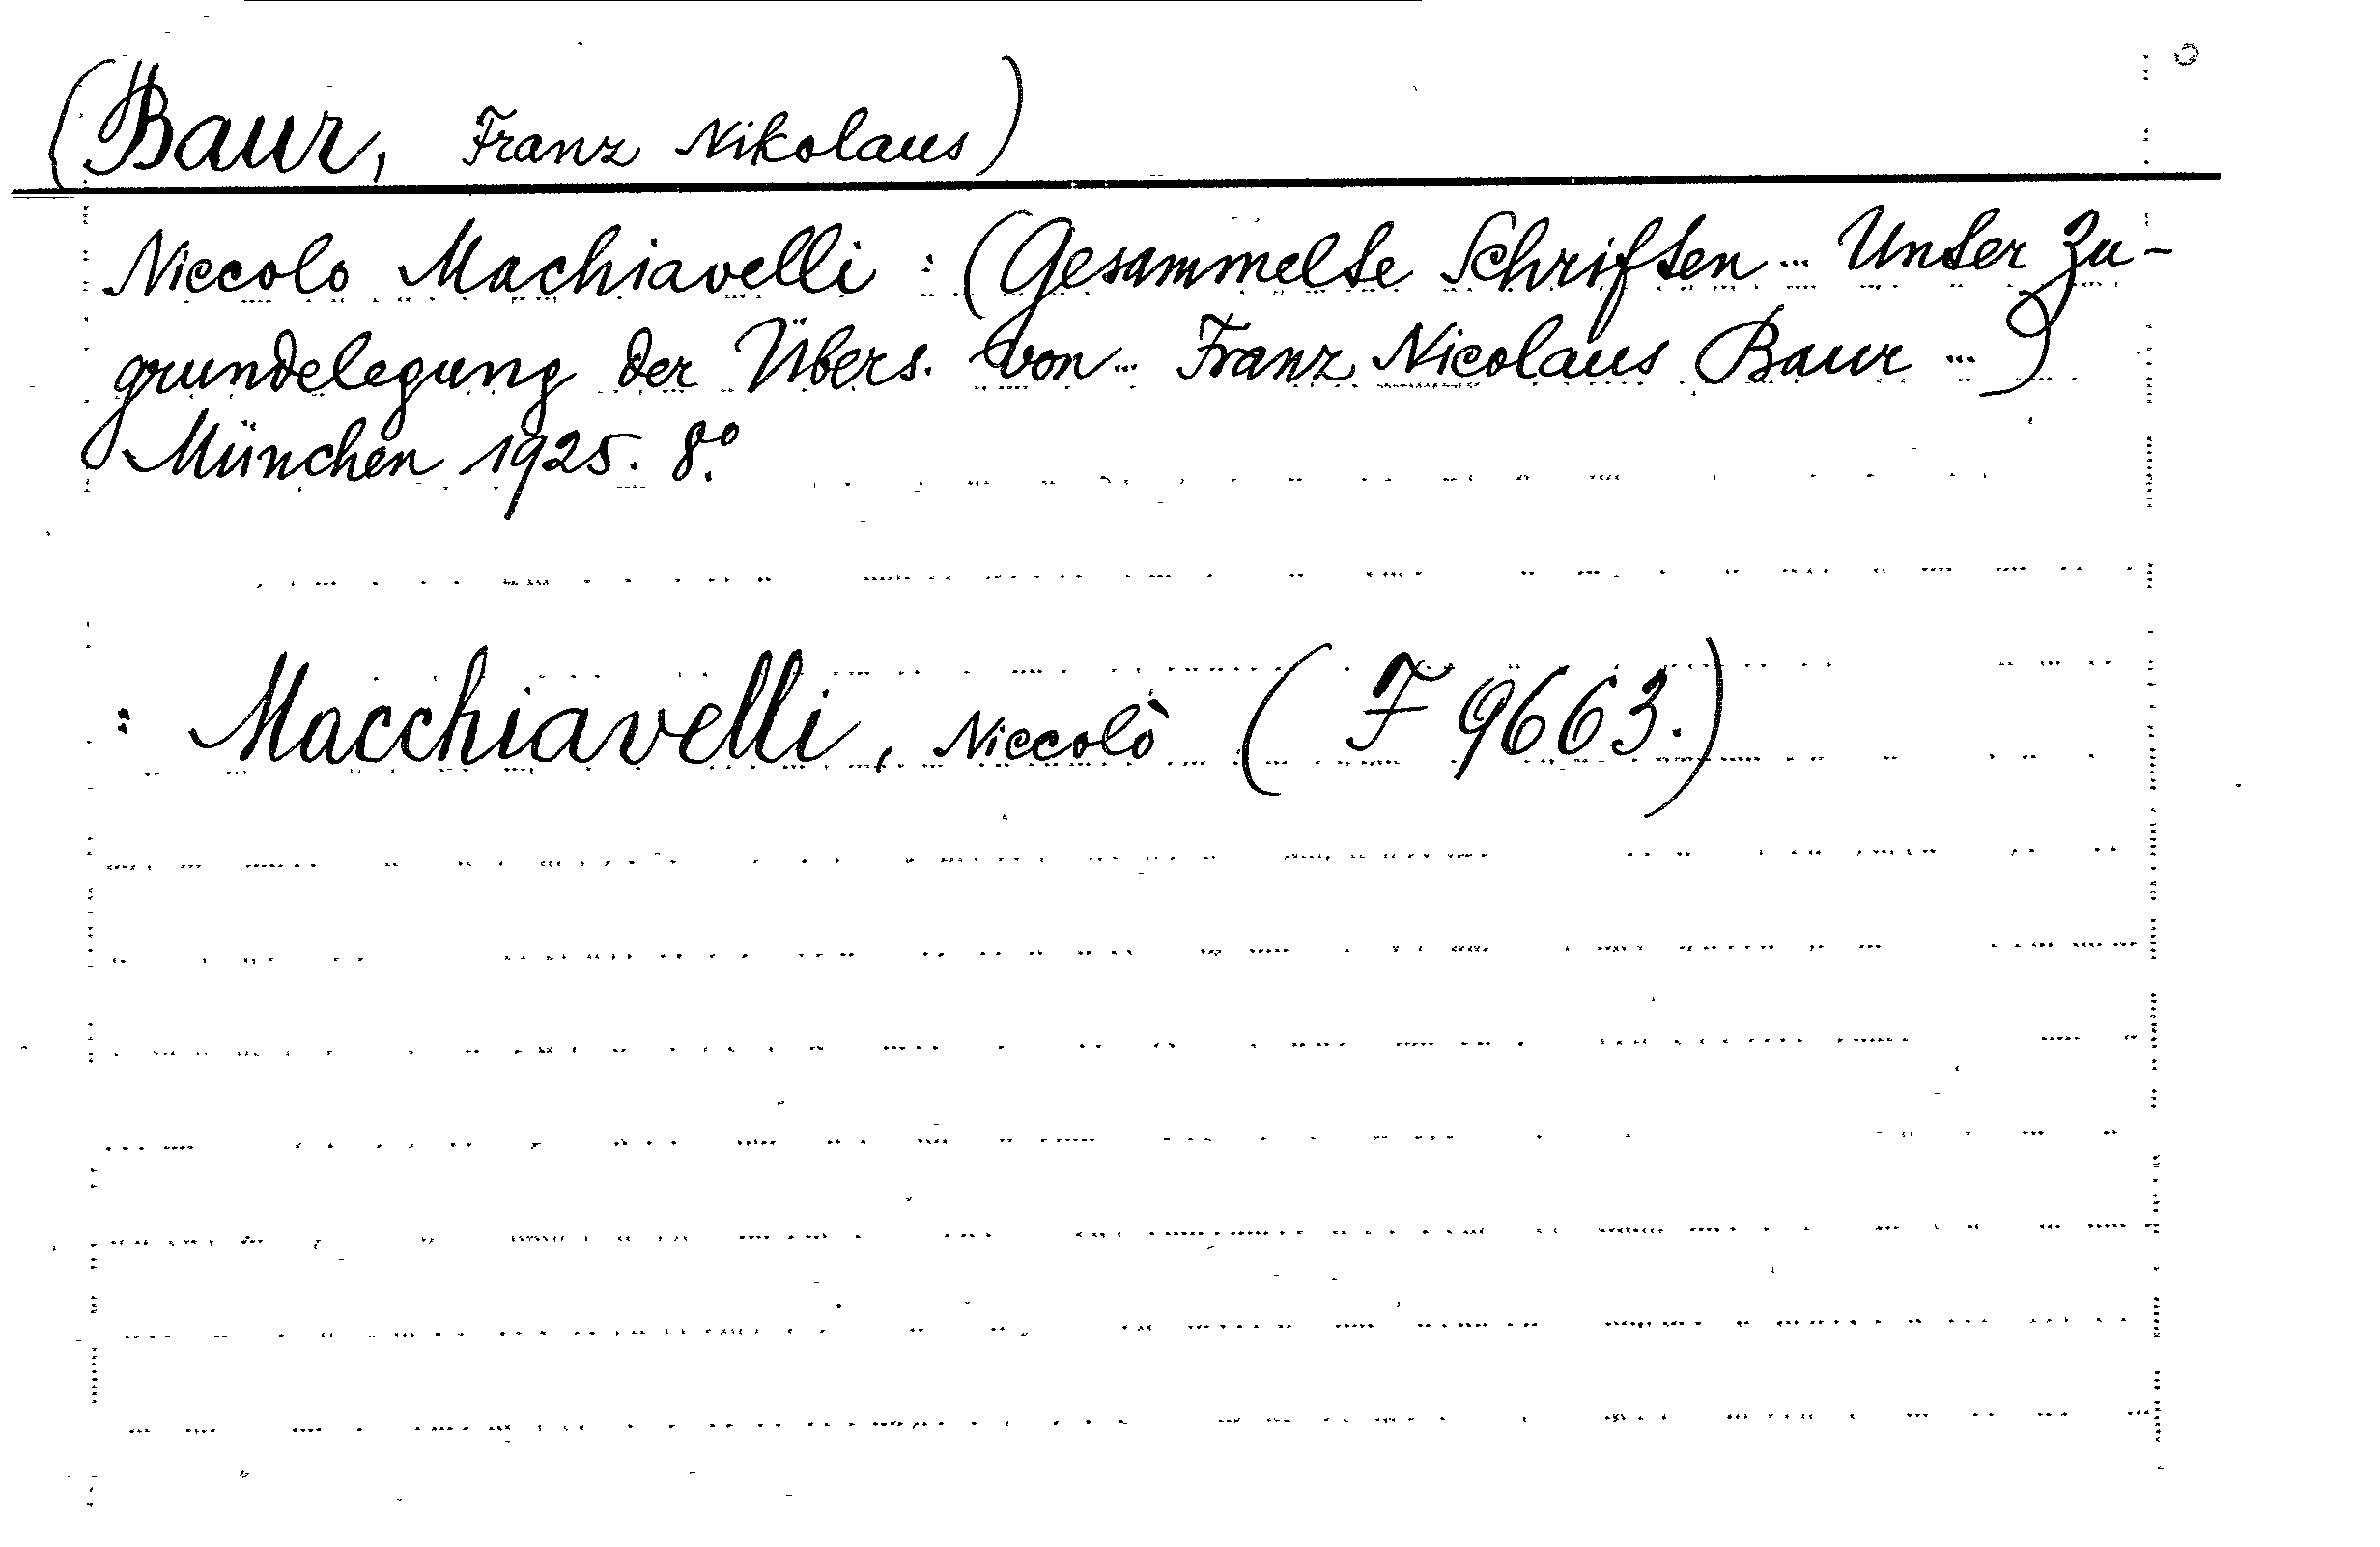 (Baur, Franz Nikolaus)
Niccolo Machiavelli : (Gesammelte Schriften ... Unter Zu-
grundelegung der Übers. von ... Franz Nicolaus Baur ...)
München 1925. 8.°
: Macchiavelli, Niccolò (F 9663.)